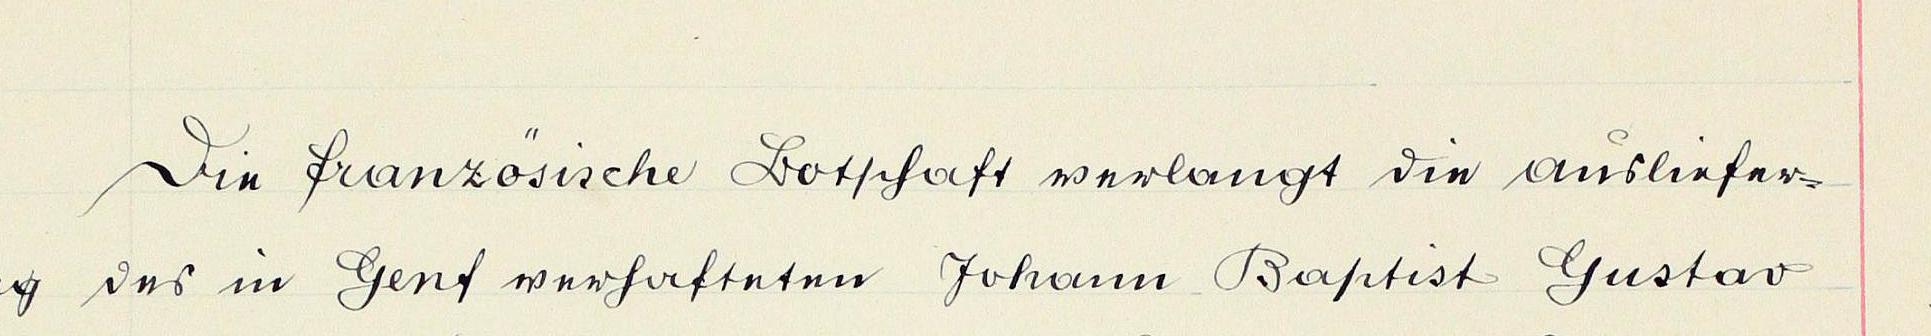 Die französische Botschaft verlangt die Ausliefer=
ng des in Genf verhafteten Johann Baptist Gustav